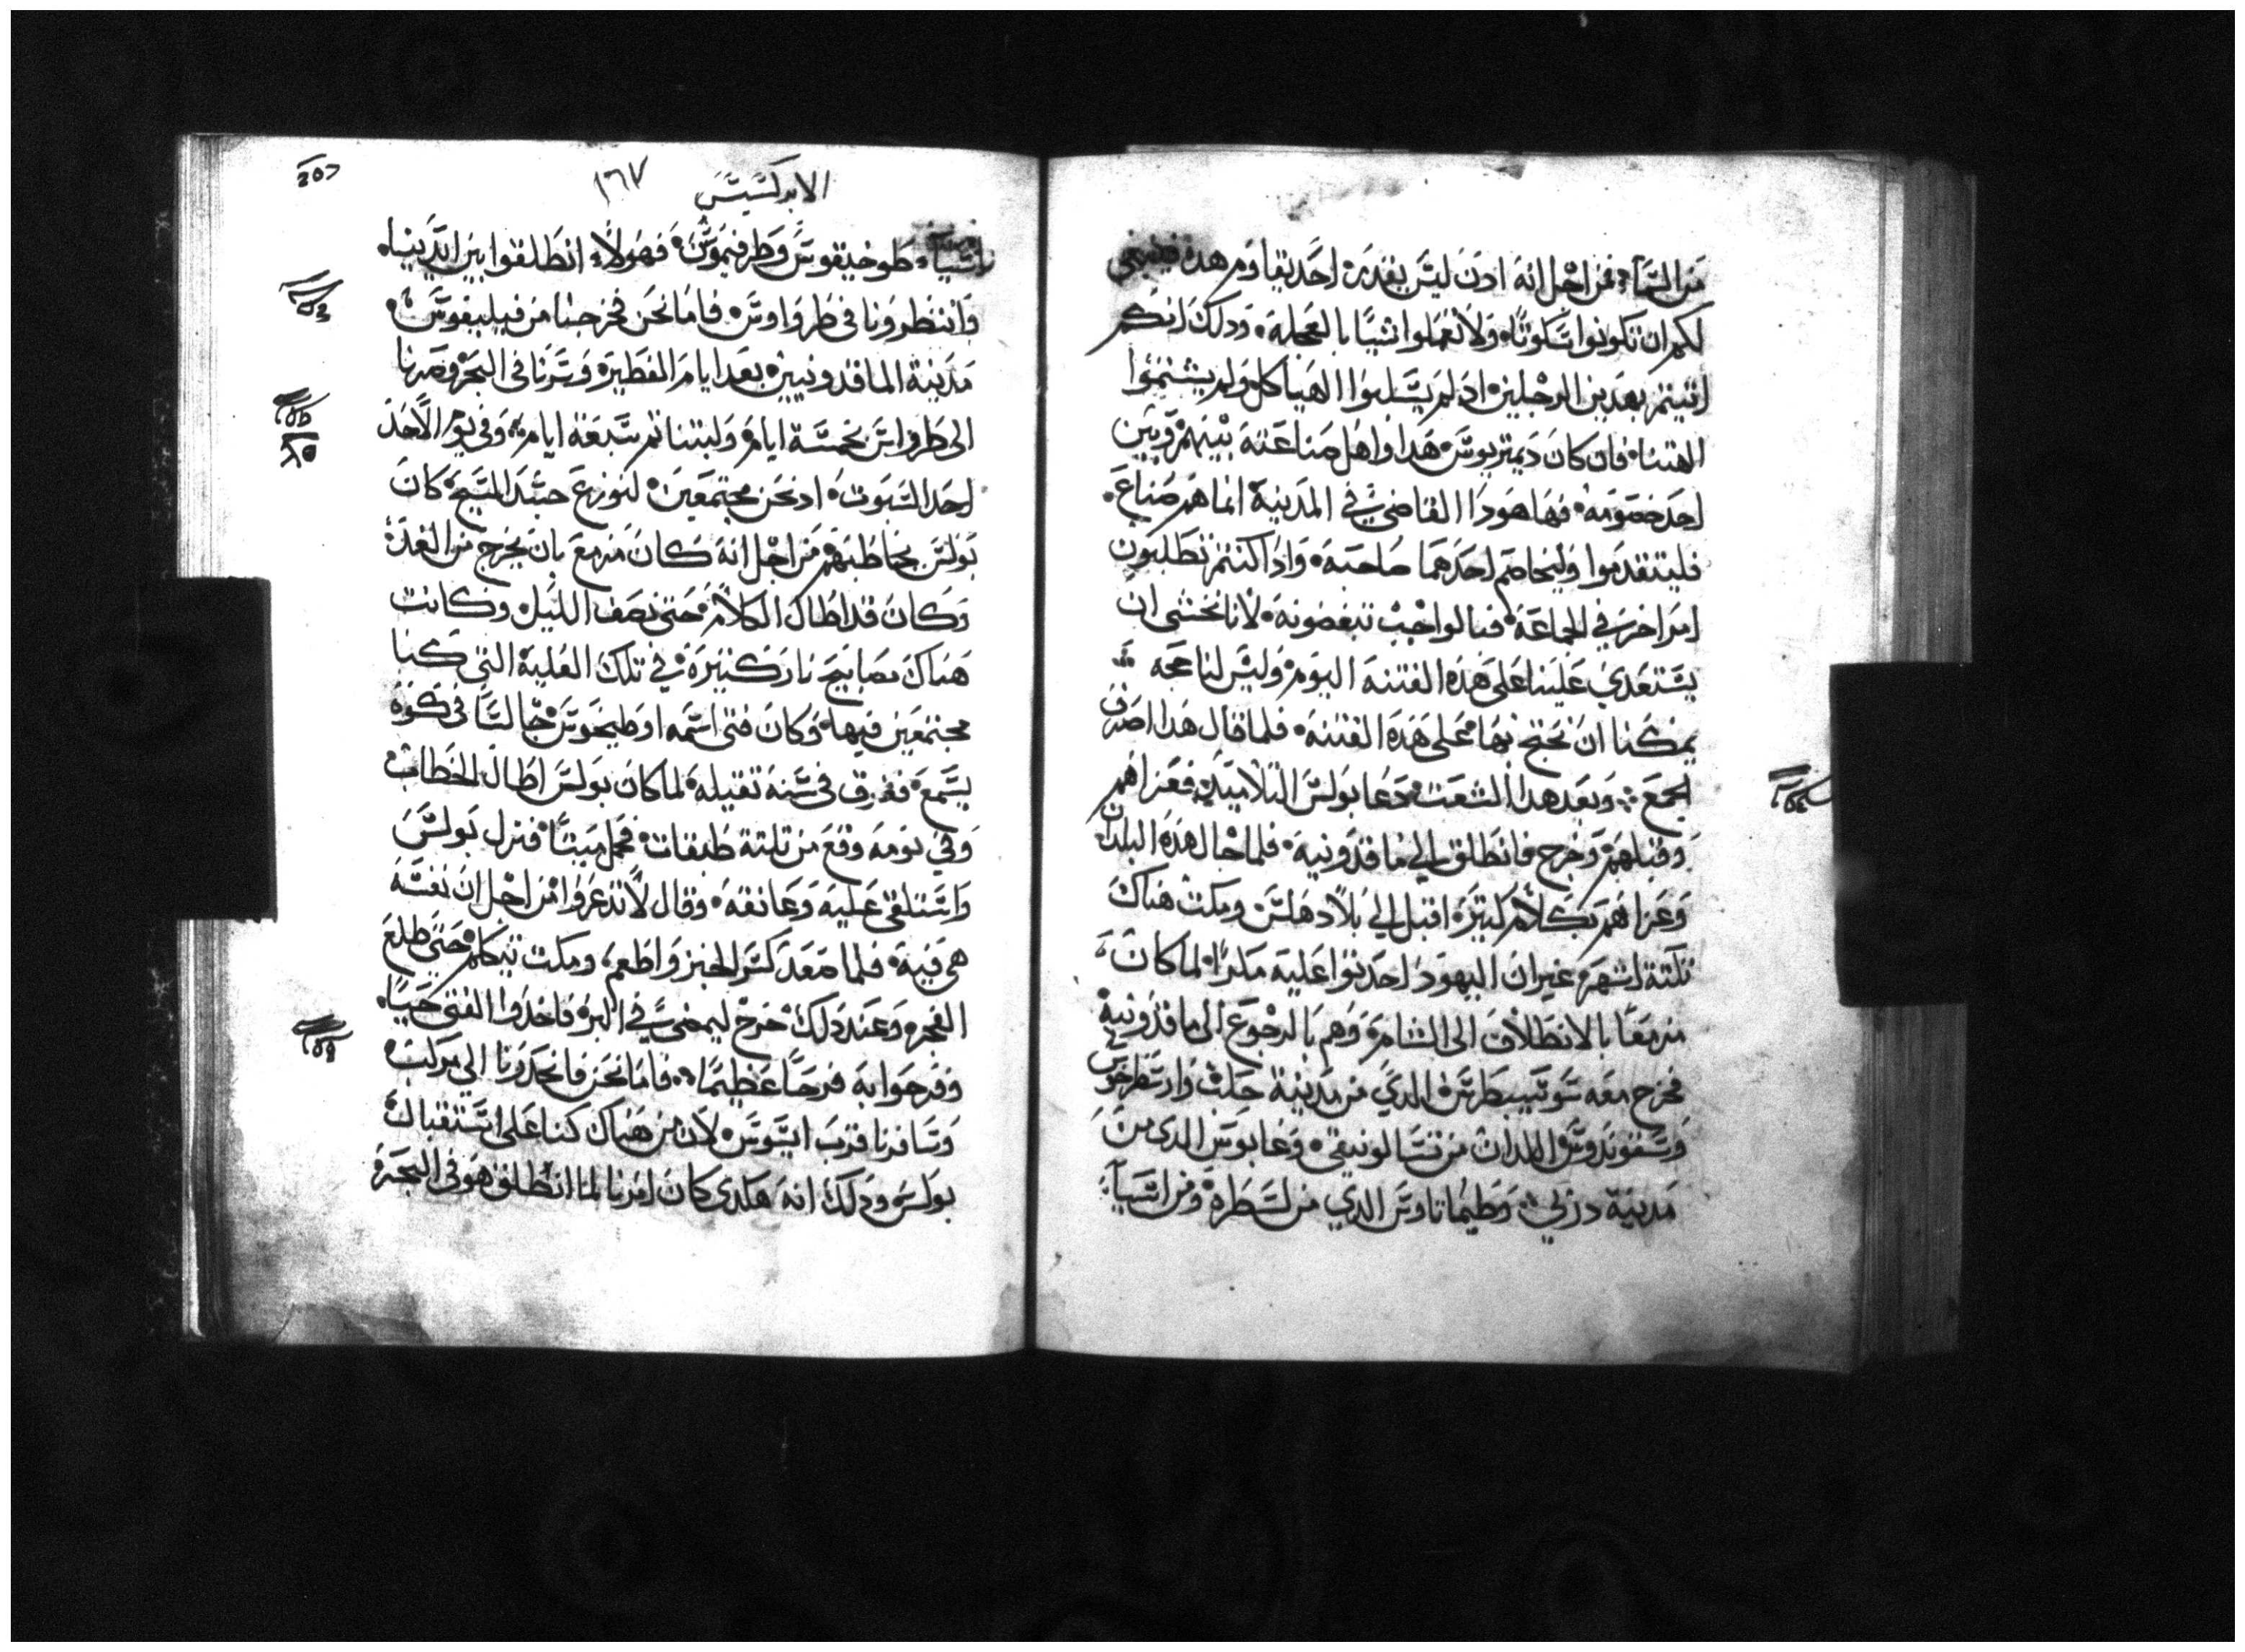 من السماء فمن اجل انه ادن ليس بقدرة احد يقاوم هده فينبغي
لكم ان تكونوا سكوتا ولا تعملوا شيا بالعجلة ودلك انكم
اتيتم بهدين الرجلين اد لم يسلبوا الهياكل ولم يشتموا
الهتنا فان كان ديمتريوس هدا واهل صناعته بينهم وبين
احد خصومة فها هودا القاضي في المدينة انما هم صناع
فليتقدموا وليخاصم احدهما صاحبه وادا كنتم تطلبون
امرا اخر في الجماعة فبالواجب تبغضونه لانا نخشى ان
يستعدي علينا على هده الفتنة اليوم وليس لنا حجه
يمكننا ان نحتج بها على هده الفتنة فلما قال هدا اصرف
الجمع وبعد هدا الشعث دعا بولس التلاميد فعزاهم
وقبلهم وخرج فانطلق الى ماقدونية فلما جال هده البلدان
وعزاهم بكلام كتيرة اقبل الي بلاد هلس ومكت هناك
تلتة اشهر غير ان اليهود احدتوا عليه مكرا لما كان
مزمعا بالانطلاق الى الشام وهم بالرجوع الى ماقدونية
فخرج معه سوسيبطرس الدي من مدينة حلب وارسطرخوس
وسقوندوس اللدان من تسالونيقى وغايوس الدى من
مدينة دربي وطيماتاوس الدي من لسطرة ومن اسيا
الابركسيس ١٦٧
اسيا طوخيقوس وطرفيموس فهولاء انطلقوا بين ايدينا
وانتظرونا في طرواوس فاما نحن فخرجنا من فيليبفوس
مدينة الماقدونيين بعد ايام الفطير وسرنا في البحر وصرنا
الى طرواس بخمسة ايام ولبتنا تم سبعة ايام وفي يوم الاحد
احد السبوت اد نحن مجتمعين لنوزع جسد المسيح كان
بولس يخاطبهم من اجل انه كان مزمع بان يخرج من الغد
وكان قد اطال الكلام حتى نصف الليل وكانت
هناك مصابيح نار كتيرة في تلك العلية التي كنا
مجتمعين فيها وكان فتى اسمه اوطيخوس جالسا في كوة
يسمع فغرق في سنه تقيله لما كان بولس اطال الخطاب
وفي نومه وقع من تلتة طبقات فحمل ميتا فنزل بولس
واستلقى عليه وعانقه وقال لا تدعروا من اجل ان نفسه
هي فيه فلما صعد كسر الخبز واطعم ومكت يتكلم حتى طلع
الفجر وعند دلك خرج ليمضي في البر فاخدوا الفتى حيا
وفرحوا به فرحا عظيما فاما نحن فانحدرنا الى مركب
وسافرنا قرب ايسوس لان من هناك كنا على استقبال
بولس ودلك انه هكدى كان امرنا لما انطلق هو في البحر